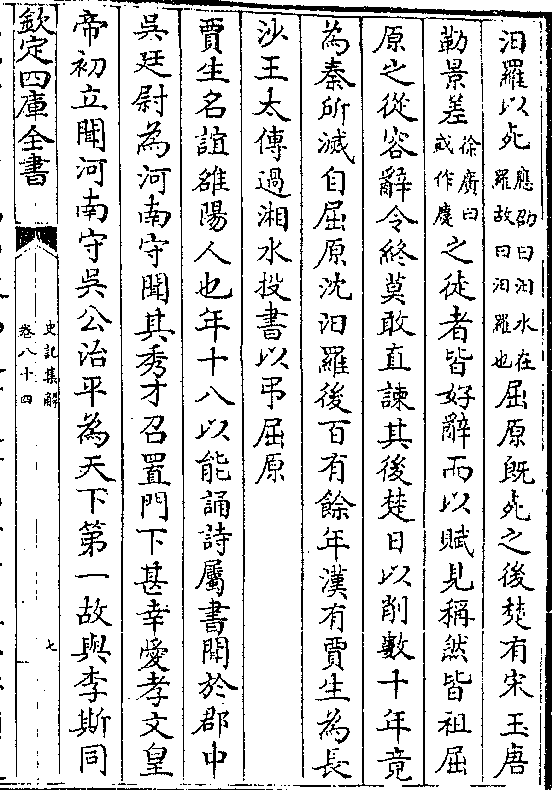 汨羅以死應劭曰汨水在羅故曰汨羅也屈原既死之後楚有宋玉唐
勒景差徐廣曰或作慶之徒者皆好辭而以賦見稱然皆祖屈
原之從容辭令終莫敢直諫其後楚日以削數十年竟
為秦所滅自屈原沈汨羅後百有餘年漢有賈生為長
沙王太傅過湘水投書以弔屈原
賈生名誼雒陽人也年十八以能誦詩屬書聞於郡中
吳廷尉為河南守聞其秀才召置門下甚幸愛孝文皇
帝初立聞河南守吳公治平為天下第一故與李斯同
欽定四庫全書
史記集解
卷八十四
七